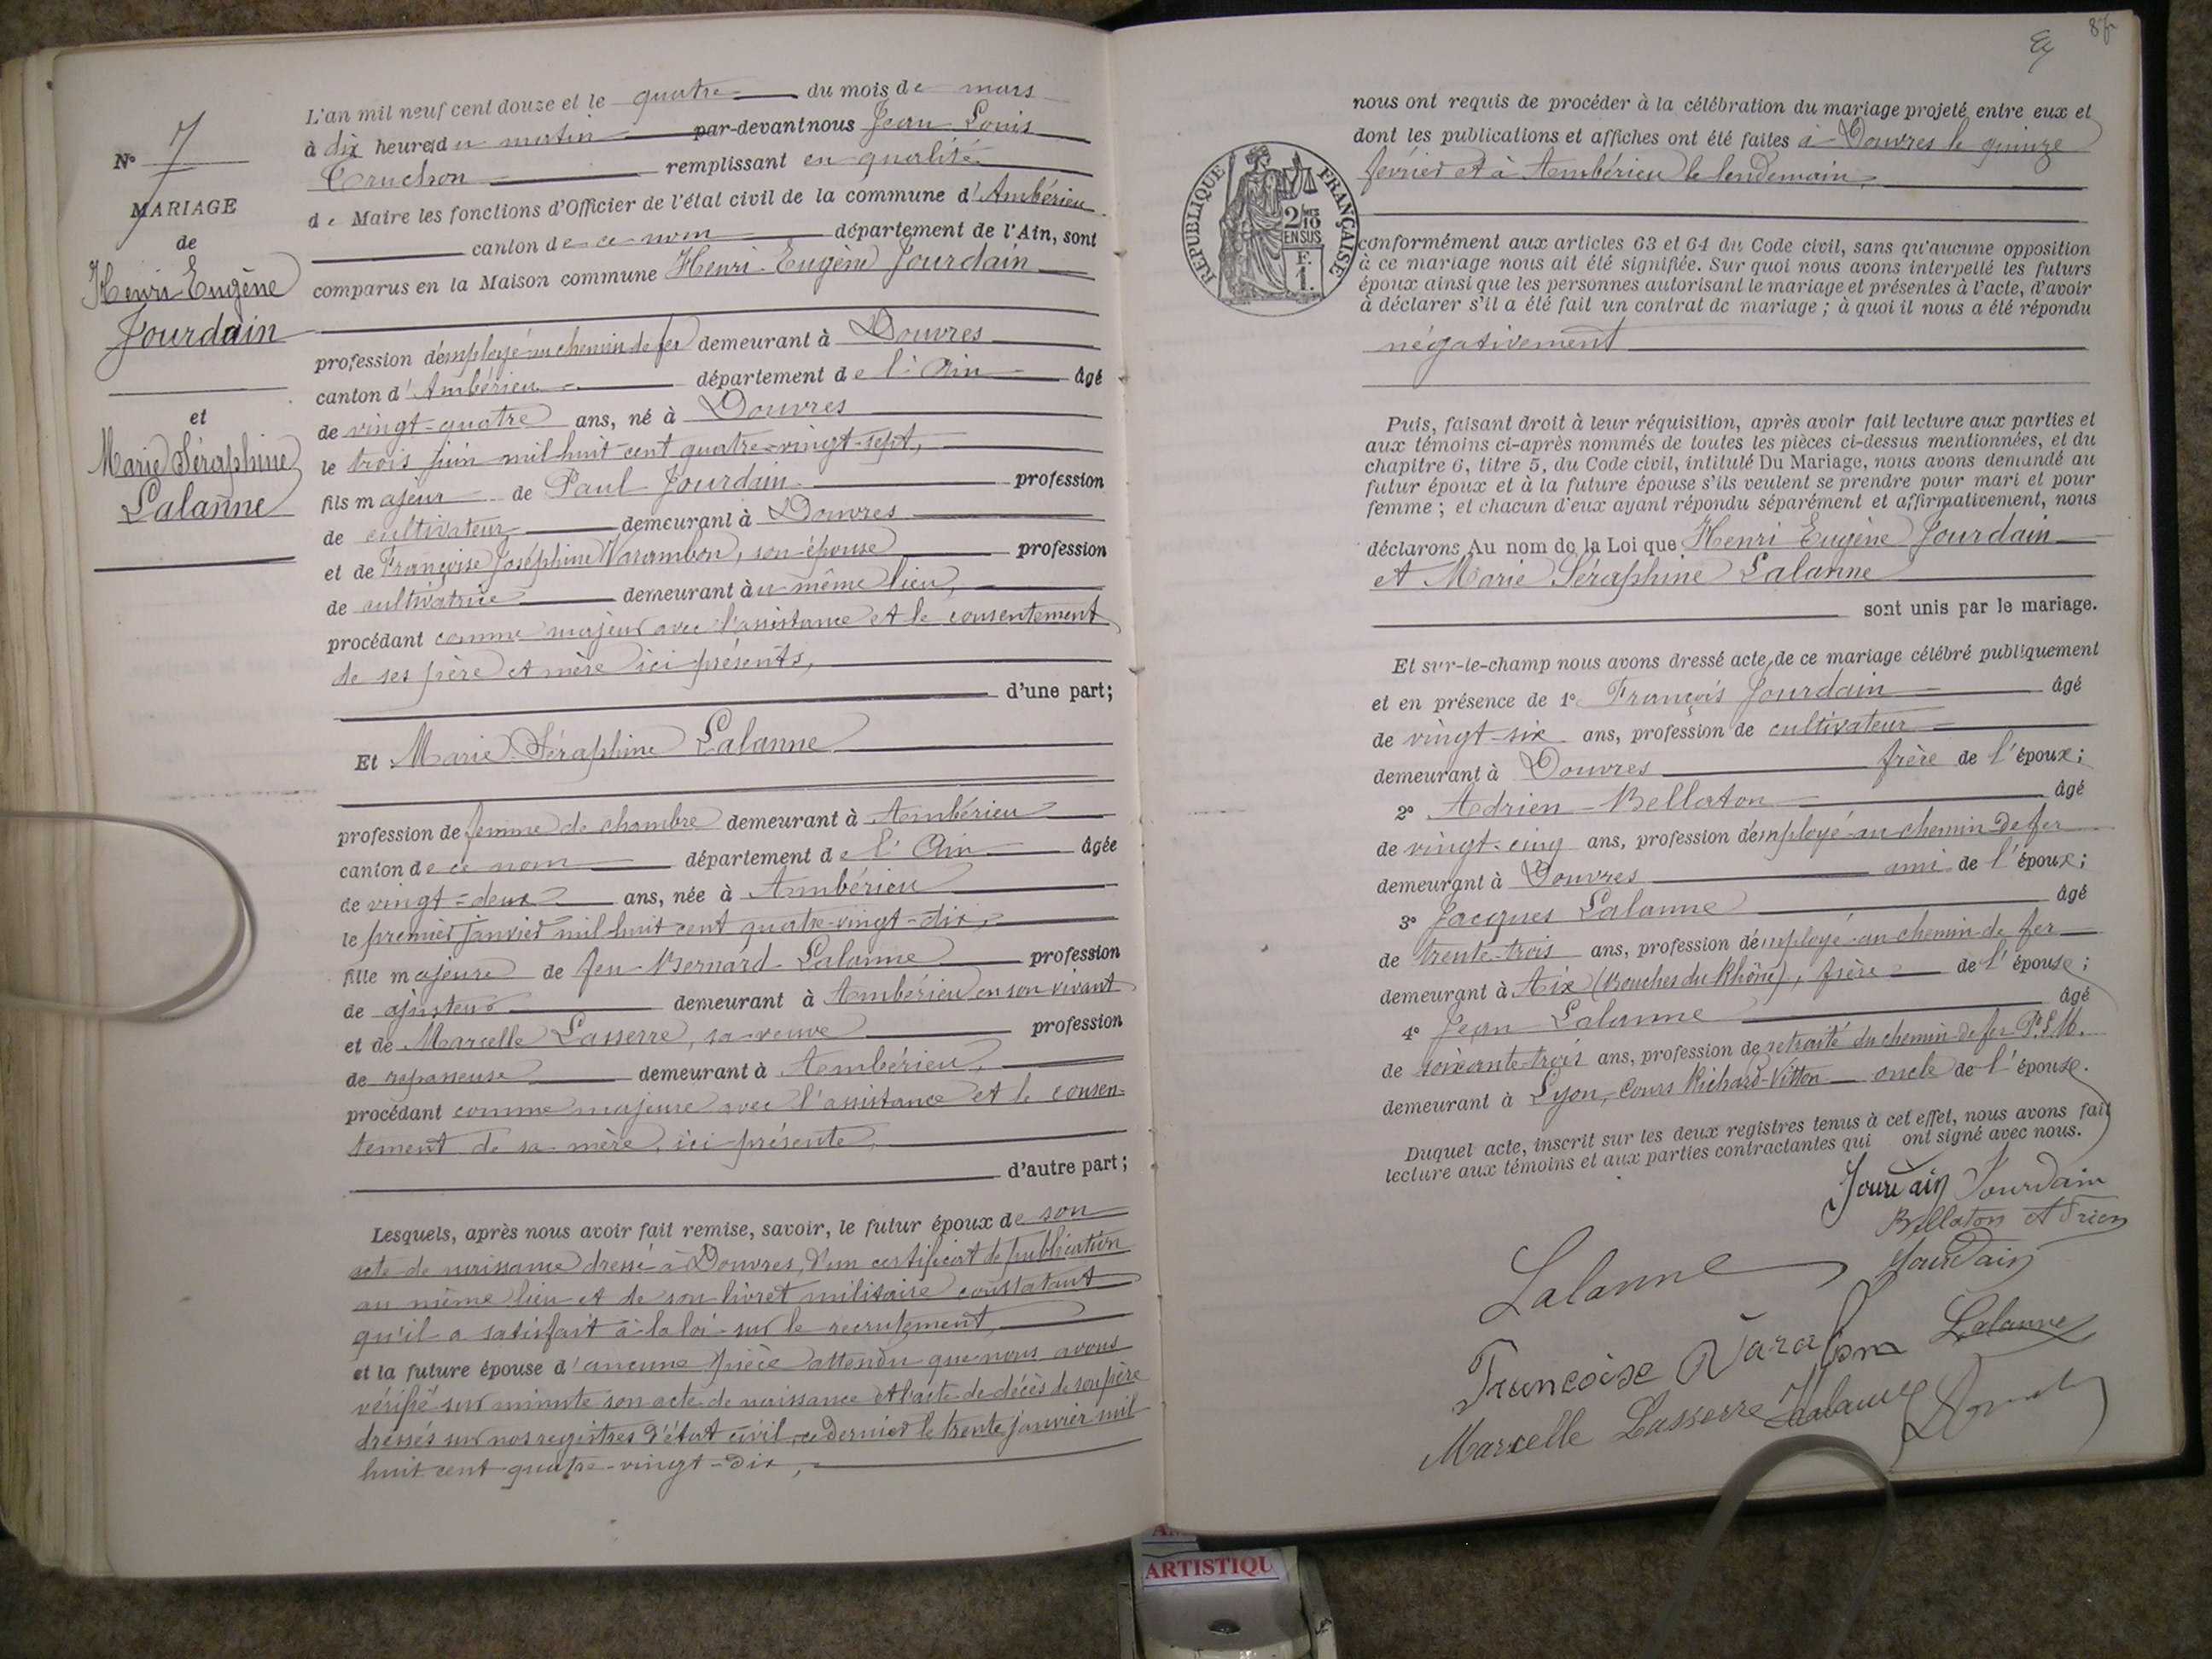 N° 7
MARIAGE
de
Henri Eugène
Jourdain
et
Marie Séraphine
Lalanne
L'an mil neuf cent douze et le quatre du mois de mars
à dix heures du matin par-devant nous Jean Louis
Cruchon remplissant en qualité
de Maire les fonctions d'Officier de l'état civil de la commune d'Ambérieu
canton de ce nom département de l'Ain, sont
comparus en la Maison commune Henri Eugène Jourdain
profession d'employé au chemin de fer demeurant à Douvres
canton d'Ambérieu département de l'Ain âgé
de vingt-quatre ans, né à Douvres
le trois juin mil huit cent quatre-vingt-sept,
fils majeur de Paul Jourdain profession
de cultivateur demeurant à Douvres
et de Françoise Joséphine Varambon, son épouse profession
de cultivatrice demeurant au même lieu,
procédant comme majeur avec l'assistance et le consentement
de ses père et mère ici présents,
d'une part;
Et Marie Séraphine Lalanne
profession de femme de chambre demeurant à Ambérieu
canton de ce nom département de l'Ain âgée
de vingt-deux ans, née à Ambérieu
le premier janvier mil huit cent quatre-vingt-dix,
fille majeure de feu Bernard Lalanne profession
de ajusteur demeurant à Ambérieu en son vivant
et de Marcelle Lasserre, sa veuve profession
de repasseuse demeurant à Ambérieu,
procédant comme majeure avec l'assistance et le consen-
tement de sa mère, ici présente,
d'autre part;
Lesquels, après nous avoir fait remise, savoir, le futur époux de son
acte de naissance dressé à Douvres, d'un certificat de publication
au même lieu et de son livret militaire constatant
qu'il a satisfait à la loi sur le recrutement,
et la future épouse d'aucune pièce attendu que nous avons
vérifié sur minute son acte de naissance et l'acte de décès de son père
dressés sur nos registres d'état civil, ce dernier le trente janvier mil
huit cent quatre-vingt-dix,
nous ont requis de procéder à la célébration du mariage projeté entre eux et
dont les publications et affiches ont été faites à Douvres le quinze
février et à Ambérieu le lendemain,
RÉPUBLIQUE FRANÇAISE
2/10
EN SUS
F.
1.
conformément aux articles 63 et 64 du Code civil, sans qu'aucune opposition
à ce mariage nous ait été signifiée. Sur quoi nous avons interpellé les futurs
époux ainsi que les personnes autorisant le mariage et présentes à l'acte, d'avoir
à déclarer s'il a été fait un contrat de mariage; à quoi il nous a été répondu
négativement
Puis, faisant droit à leur réquisition, après avoir fait lecture aux parties et
aux témoins ci-après nommés de toutes les pièces ci-dessus mentionnées, et du
chapitre 6, titre 5, du Code civil, intitulé Du Mariage, nous avons demandé au
futur époux et à la future épouse s'ils veulent se prendre pour mari et pour
femme; et chacun d'eux ayant répondu séparément et affirmativement, nous
déclarons Au nom de la Loi que Henri Eugène Jourdain
et Marie Séraphine Lalanne
sont unis par le mariage.
Et sur-le-champ nous avons dressé acte de ce mariage célébré publiquement
et en présence de 1° François Jourdain âgé
de vingt-six ans, profession de cultivateur
demeurant à Douvres frère de l'époux;
2° Adrien Bellaton âgé
de vingt-cinq ans, profession d'employé au chemin de fer
demeurant à Douvres ami de l'époux;
3° Jacques Lalanne âgé
de trente-trois ans, profession d'employé au chemin de fer
demeurant à Aix (Bouches du Rhône), frère de l'épouse;
4° Jean Lalanne âgé
de soixante-trois ans, profession de retraité du chemin de fer P.L.M.
demeurant à Lyon, Cours Richard-Vitton oncle de l'épouse.
Duquel acte, inscrit sur les deux registres tenus à cet effet, nous avons fait
lecture aux témoins et aux parties contractantes qui ont signé avec nous.
Jourdain Jourdain
Bellaton Adrien
Lalanne Jourdain
Françoise Varambon Lalanne
Marcelle Lasserre Lalanne
ARTISTIQU